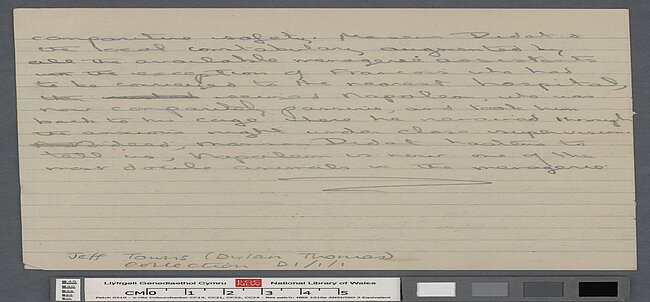 comparative safety. Maxim Didot &
the local constabulary, augmented by
all the available menagerie assistants
the exception of Francois who had
to be conveyed to the nearest hospital,
then secured Napoleon, who was
now comparatively passive, and took him
back to his cage where he remained through
the night under close supervision
Indeed, Didot hastens to
tell us, Napoleon is now one of the
most docile animals in the menagerie.
Jeff Towns (Dylan Thomas)
Collection D1/1/1
Llyfrgell Genedlaethol Cymru National Library of Wales
CM 0 1 2 3 4 5